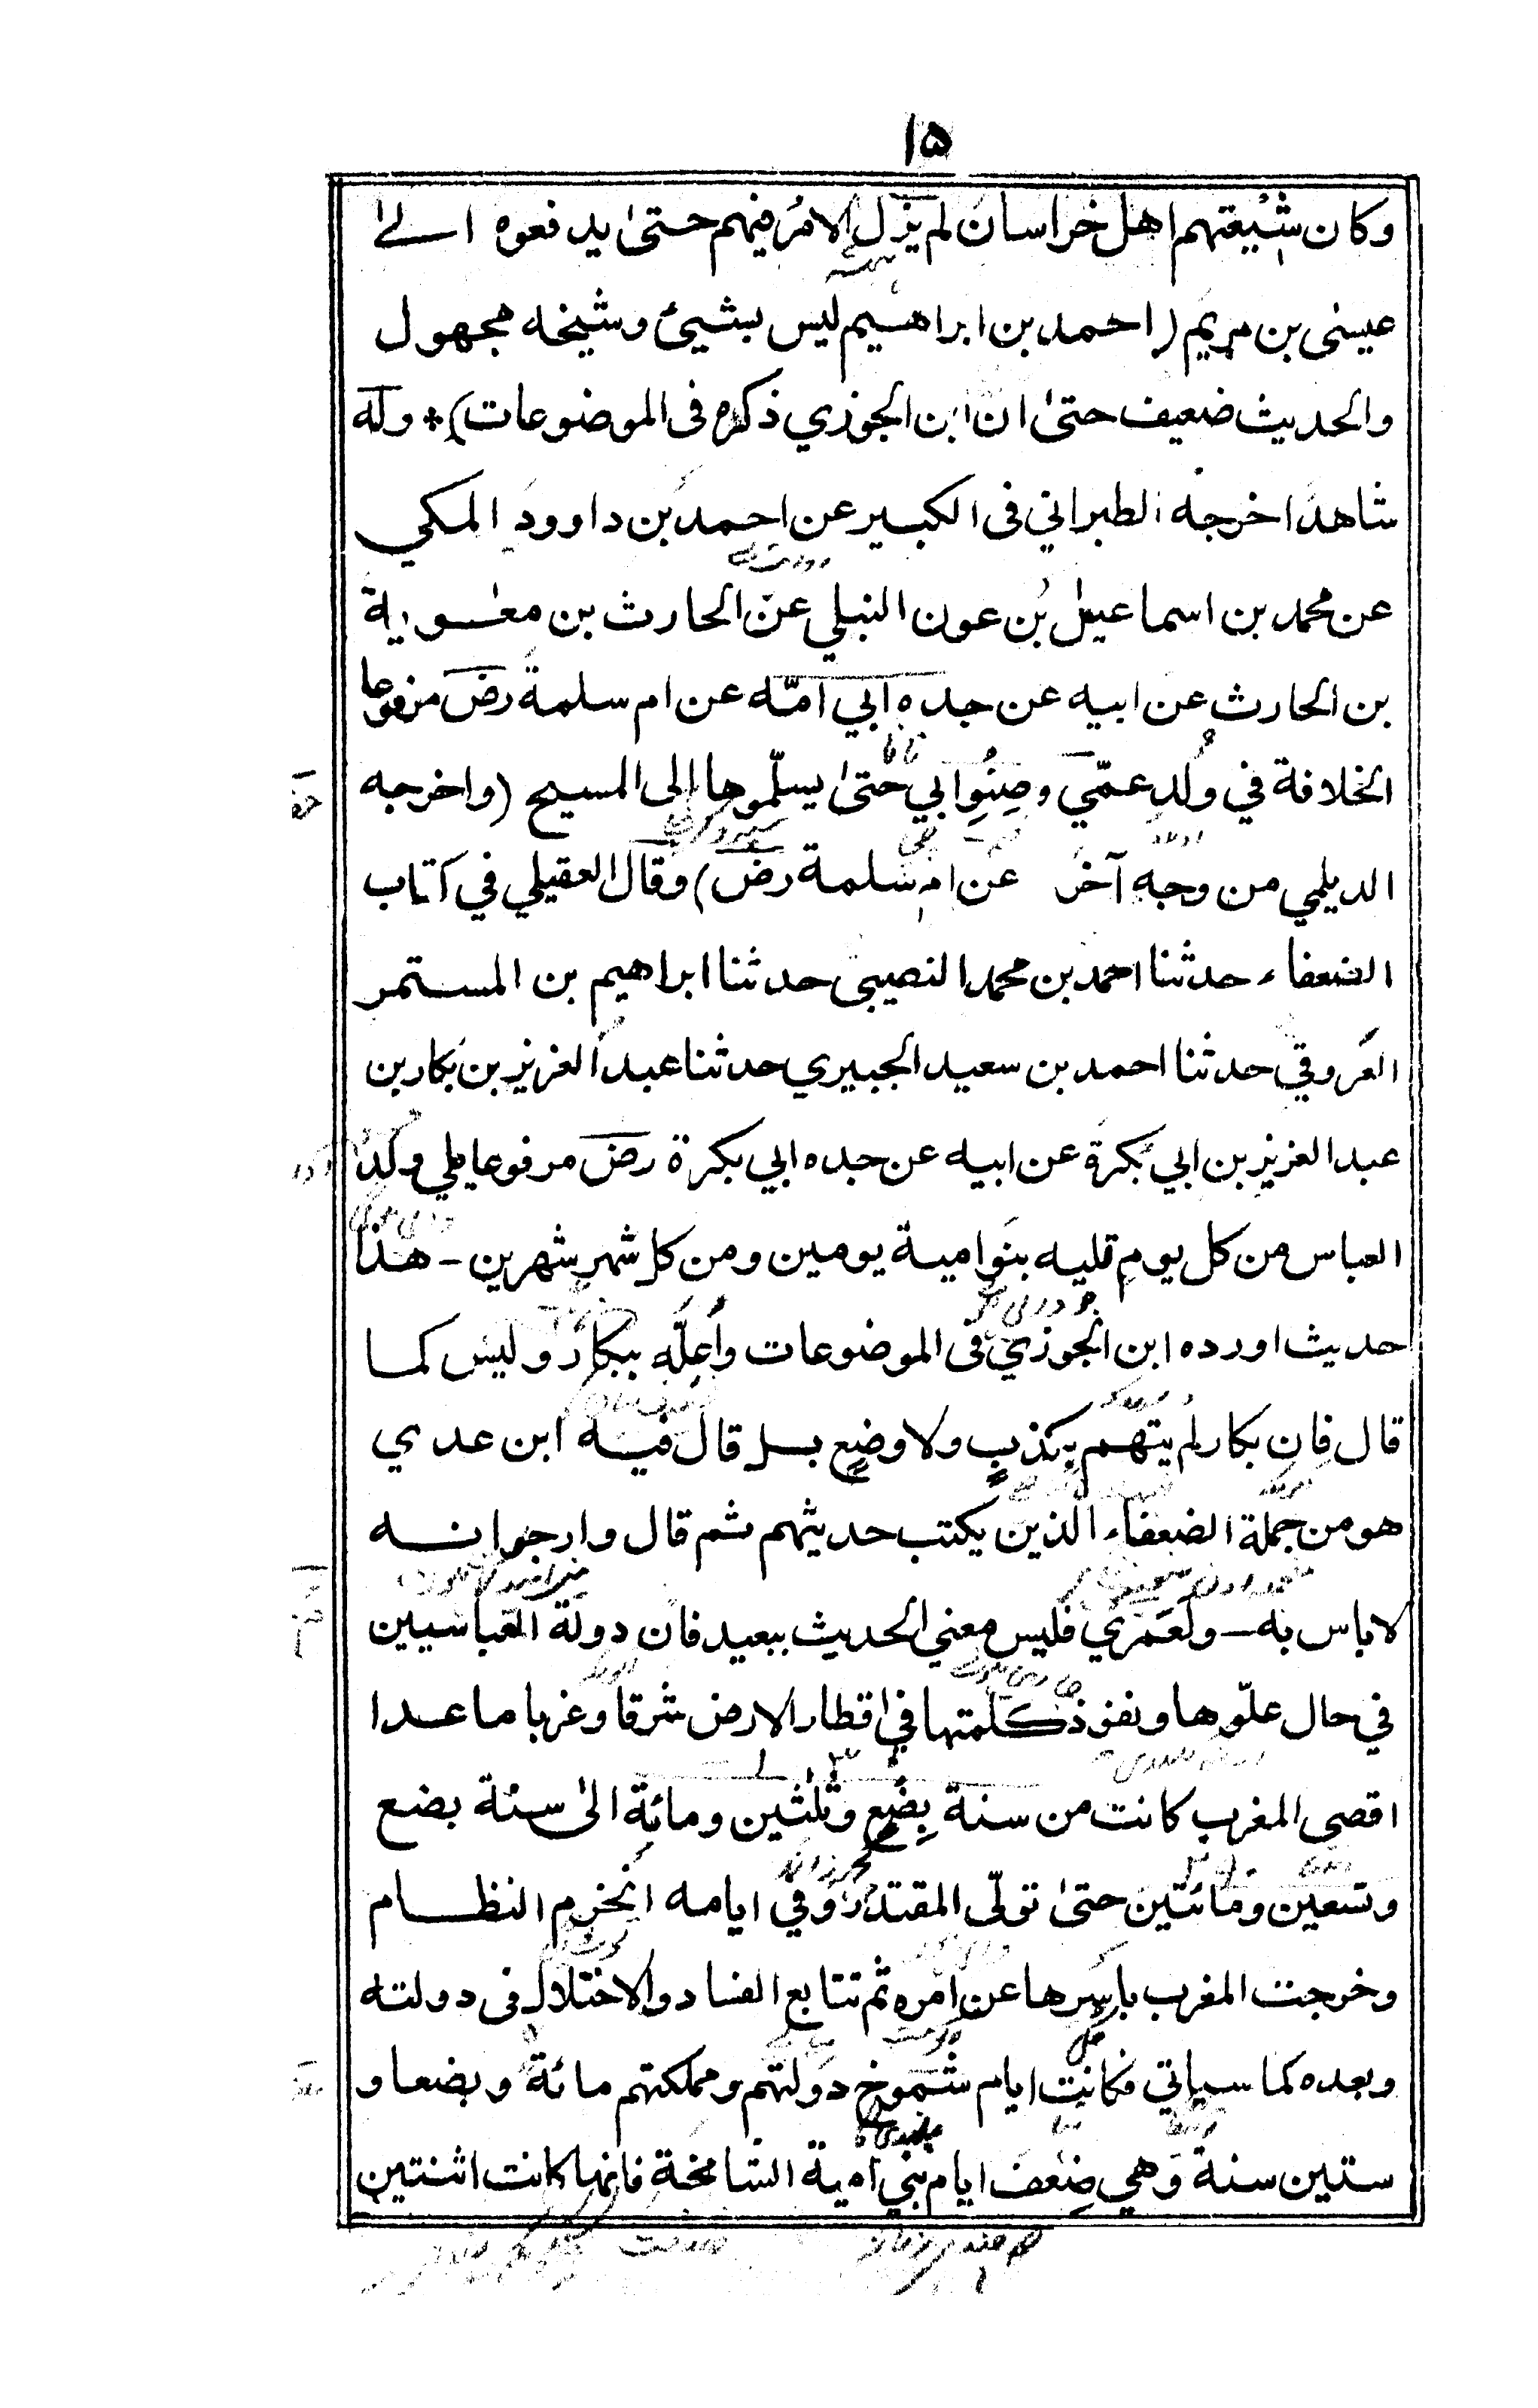 ١٥
وكان شيعتهم اهل خراسان لم يزل الامر فيهم حتىٰ يدفعوه الىٰ
عيسى بن مريم (احمد بن ابراهيم ليس بشيئ وشيخه مجهول
والحديث ضعيف حتىٰ ان ابن الجوزي ذكره فى الموضوعات) * وله
شاهد اخرجه الطبراني فى الكبير عن احمد بن داوود المكي
عن محمد بن اسماعيل بن عون النبلي عن الحارث بن معٰوية
بن الحارث عن ابيه عن جده ابي امّه عن ام سلمة رض مرفوعا
الخلافة في ولد عمّي وصِنوِ ابي حتىٰ يسلّموها الى المسيح (واخرجه
الديلمي من وجه آخر عن ام سلمة رض) وقال العقيلي في كتاب
الضعفاء حدثنا احمد بن محمد النصيبي حدثنا ابراهيم بن المستمر
العروقي حدثنا احمد بن سعيد الجبيري حدثنا عبد العزيز بن بكار بن
عبد العزيز بن ابي بكرة عن ابيه عن جده ابي بكرة رض مرفوعا يلي ولد
العباس من كل يوم تليه بنو امية يومين ومن كل شهر شهرين - هذا
حديث اورده ابن الجوزي فى الموضوعات وأعلّه ببكار وليس كما
قال فان بكار لم يتهم بكذبٍ ولا وضعٍ بل قال فيه ابن عدي
هو من جملة الضعفاء الذين يكتب حديثهم ثم قال وارجو انه
لاباس به - ولَعَمري فليس معني الحديث ببعيد فان دولة العباسيين
في حال علّوها ونفوذ كلمتها في اقطار الارض شرقا وغربا ما عدا
اقصى المغرب كانت من سنة بِضعٍ وثلٰثين ومائة الىٰ سنة بضع
وتسعين ومائتين حتىٰ تولّى المقتدر وفي ايامه انخرم النظام
وخرجت المغرب باسرها عن امره ثم تتابع الفساد والاختلال فى دولته
وبعده كما سياتي فكانت ايام شموخ دولتهم ومملكتهم مائة وبضعا و
ستين سنة وهي ضِعف ايام بني امية الشامخة فانها كانت اثنتين